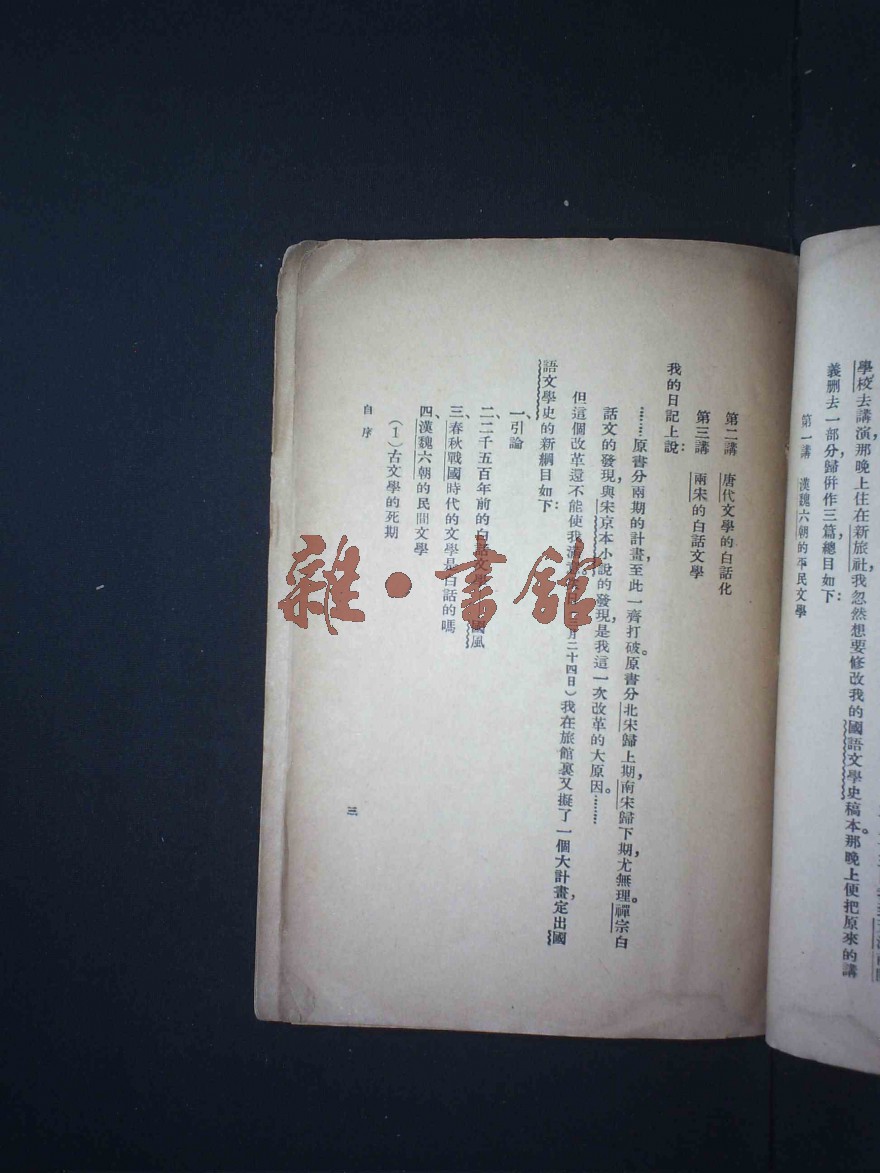 學校去講演，那晚上住在新旅社，我忽然想要修改我的國語文學史稿本。那晚上便把原來的講
義刪去一部分，歸併作三篇，總目如下：
第一講　漢魏六朝的平民文學
第二講　唐代文學的白話化
第三講　兩宋的白話文學
我的日記上說：
……原書分兩期的計畫，至此一齊打破。原書分北宋歸上期，南宋歸下期，尤無理。禪宗白
話文的發現，與宋京本小說的發現，是我這一次改革的大原因。……
但這個改革還不能使我滿 月二十四日）我在旅館裏又擬了一個大計畫，定出國
語文學史的新綱目如下：
一、引論
二、二千五百年前的白話文學 國風
三、春秋戰國時代的文學是白話的嗎
四、漢魏六朝的民間文學
（1）古文學的死期
自序
三
雜·書館